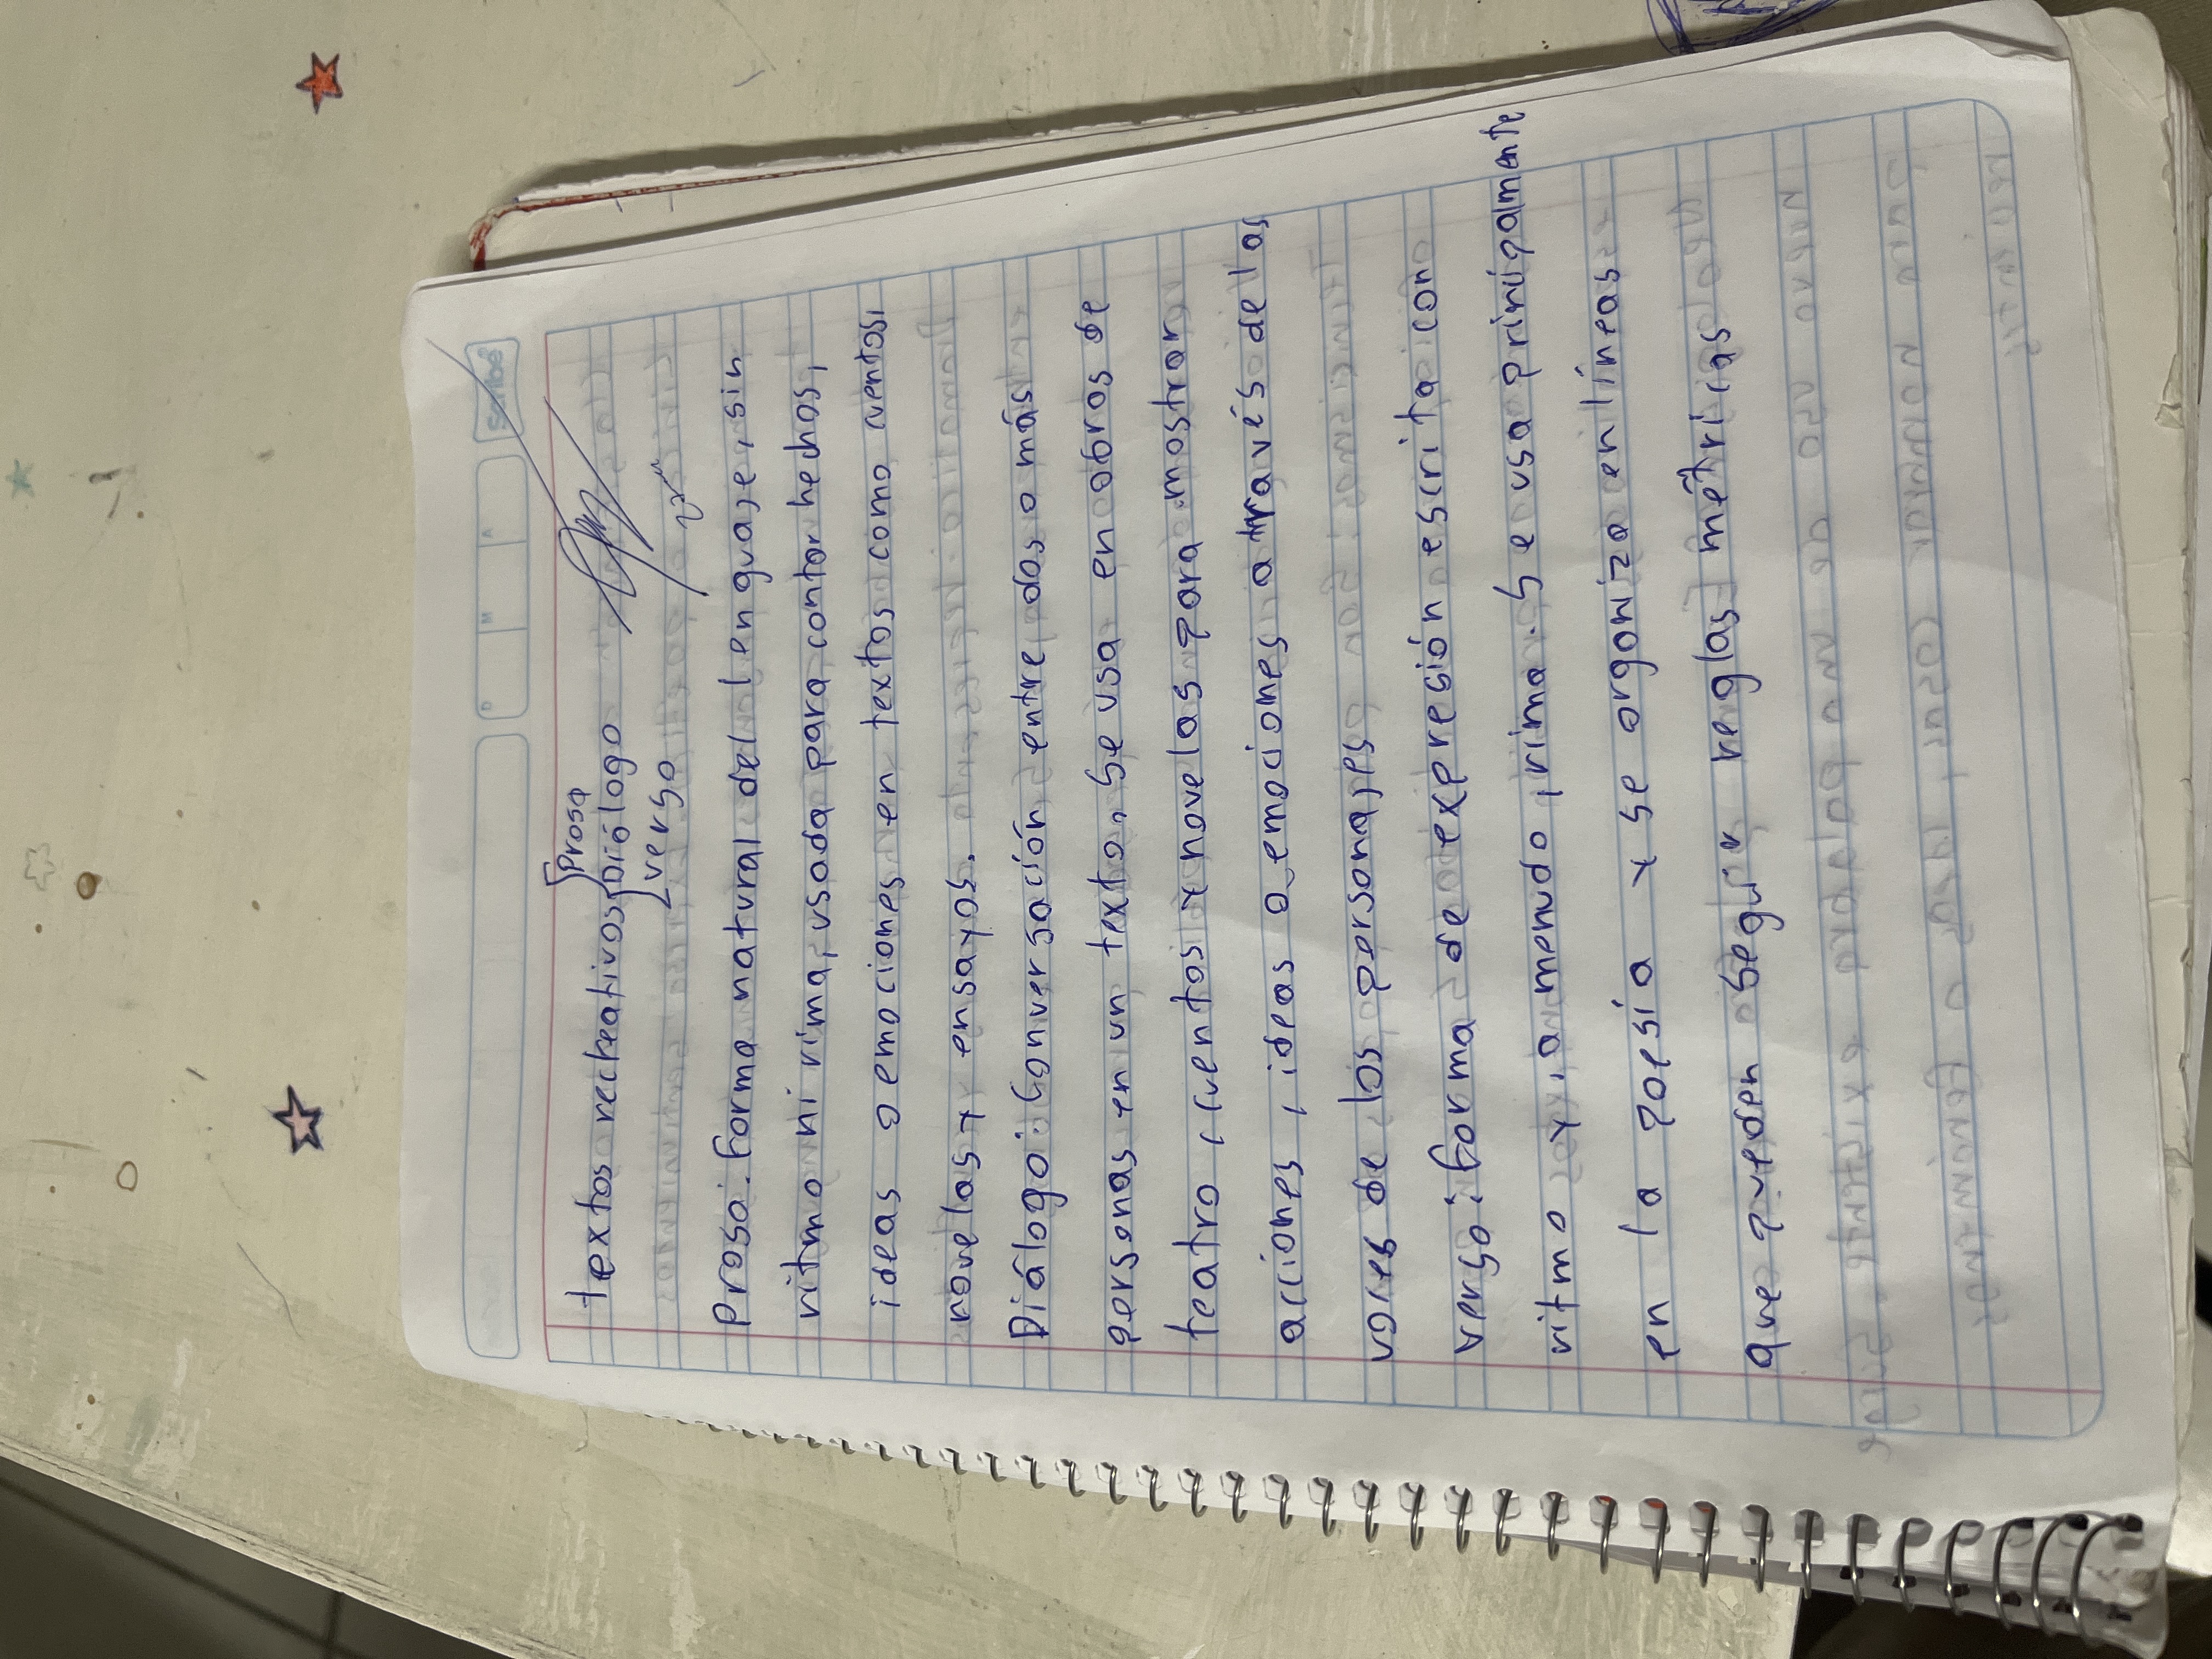 Scribe
D M A
textos reckeativos { Prosa
Diálogo
verso
Prosa: Forma natural del lenguaje, sin
ritmo ni rima, usada para contar hechos,
ideas o emociones en textos como cuentos,
novelas y ensayos.
Diálogo: Conversación entre dos o más
personas en un texto. Se usa en obras de
teatro, cuentos y novelas para mostrar
acciones, ideas o emociones a través de las
voces de los personajes
verso: Forma de expresión escrita con
ritmo y, a menudo, rima. Se usa prinipamente
en la poesía y se organiza en líneas
que pueden seguir reglas métricas